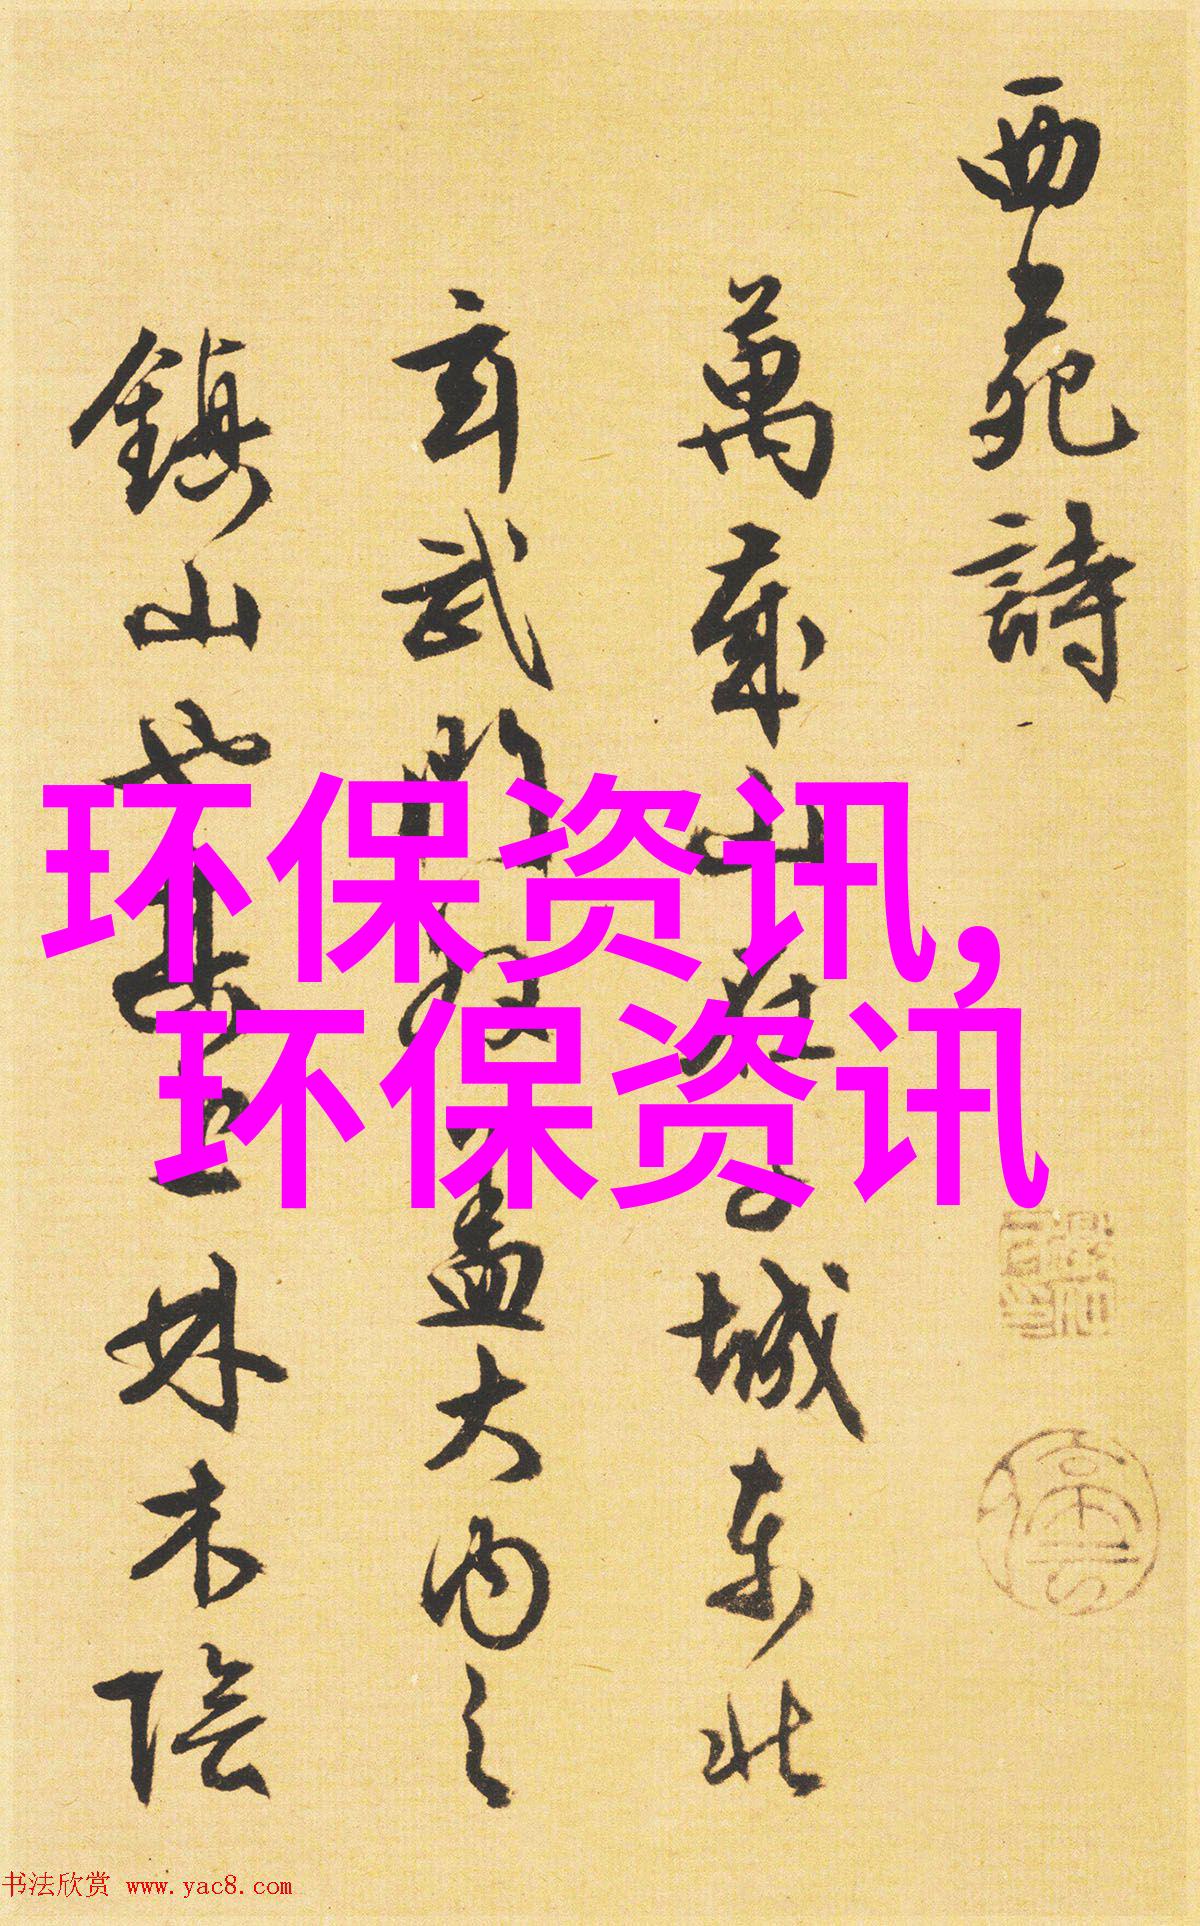 西苑詩
萬歲山在子城東北
玄武門外為大內之
鎮山高百
林木陰
环保资讯,
环保资讯
书法欣赏 www.yac8.com